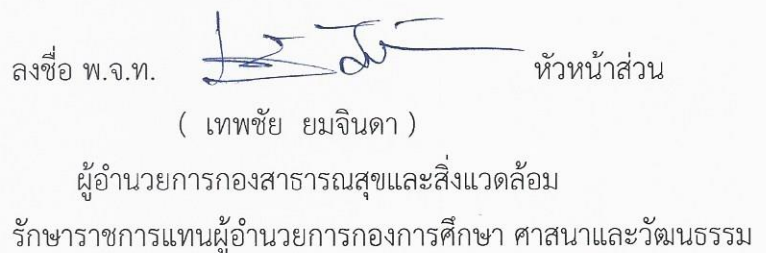 ลงชื่อ พ.จ.ท. หัวหน้าส่วน
( เทพชัย ยมจินดา )
ผู้อำนวยการกองสาธารณสุขและสิ่งแวดล้อม
รักษาราชการแทนผู้อำนวยการกองการศึกษา ศาสนาและวัฒนธรรม